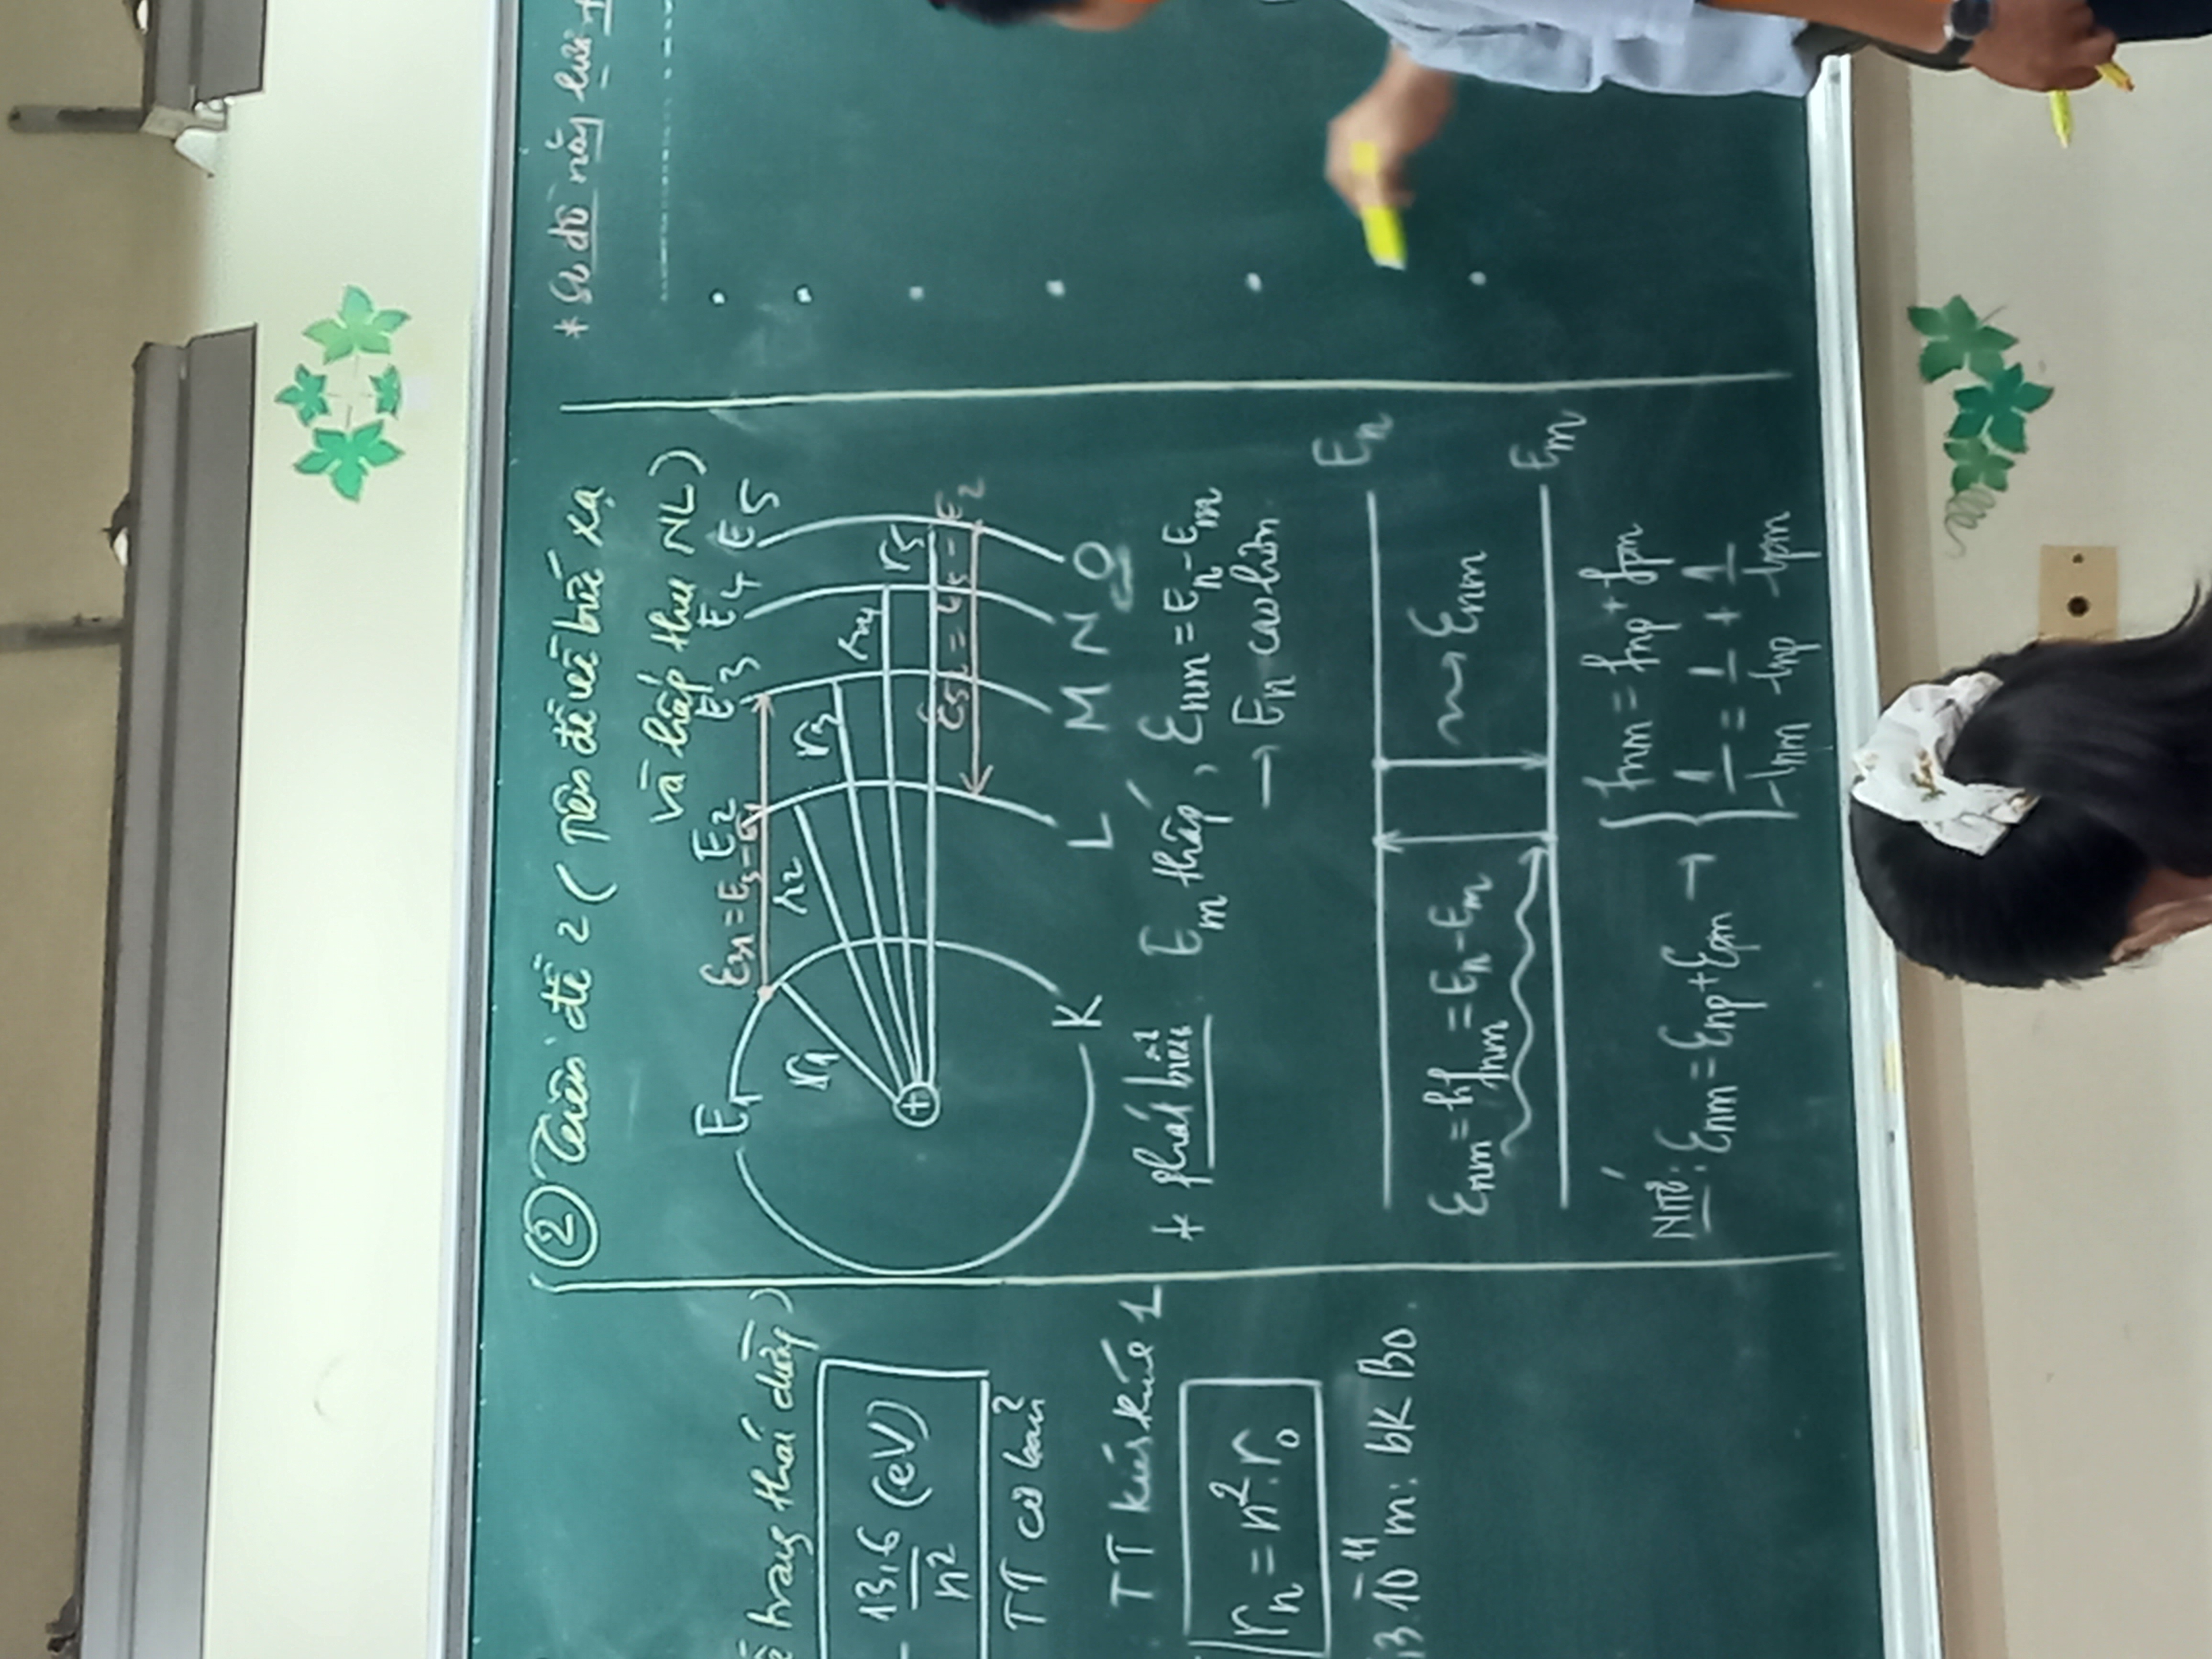 ề trạng thái dừng)
- 13,6/n² (eV)
TT cơ bản
TT kích thích 1
rₙ = n².r₀
,3.10⁻¹¹m: bK Bo.
② Tiên đề 2 (Tiên đề về bức xạ
và hấp thu NL)
E₁ ε₃₁ = E₃ - E₁ E₂ E₃ E₄ E₅
r₁ r₂ r₃ r₄ r₅
+
ε₅₂ = E₅ - E₂
K L M N O
+ phát biểu Eₘ thấp, εₙₘ = Eₙ - Eₘ
→ Eₙ cao hơn
Eₙ
εₙₘ = hfₙₘ = Eₙ - Eₘ
εₙₘ
Eₘ
εₙₘ = εₙₚ + εₚₘ → { fₙₘ = fₙₚ + fₚₘ
1/λₙₘ = 1/λₙₚ + 1/λₚₘ
* Sơ đồ